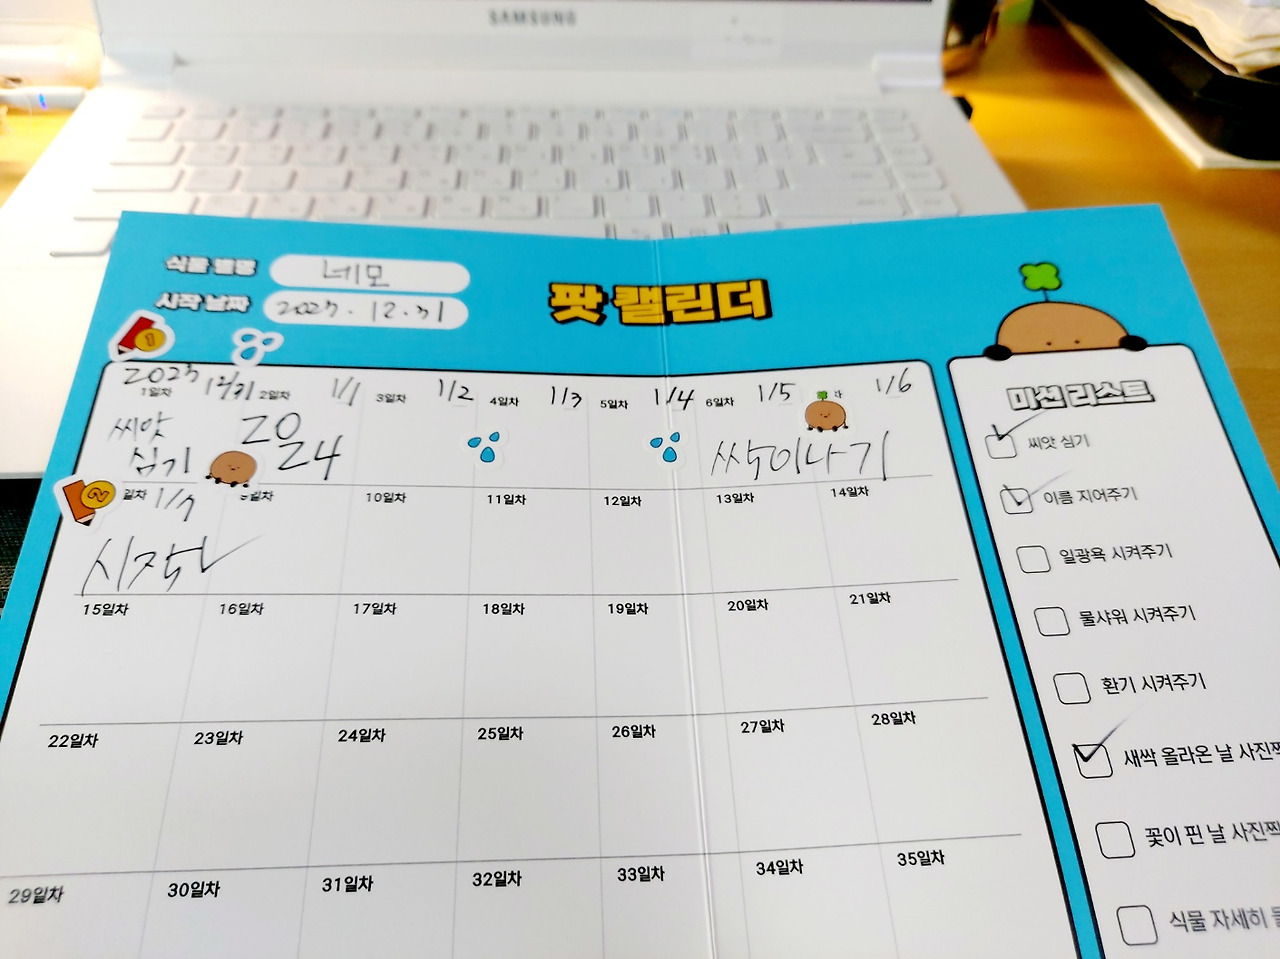 SAMSUNG
식물 별명 네모
시작 날짜 2023.12.31
팟 캘린더
1
2023 12/31 1/1 1/2 1/3 1/4 1/5 1/6
1일차 2일차 3일차 4일차 5일차 6일차
씨앗 심기
2024
싹이나기
2
일차 1/7 9일차 10일차 11일차 12일차 13일차 14일차
시작
15일차 16일차 17일차 18일차 19일차 20일차 21일차
22일차 23일차 24일차 25일차 26일차 27일차 28일차
29일차 30일차 31일차 32일차 33일차 34일차 35일차
미션 리스트
씨앗 심기
이름 지어주기
일광욕 시켜주기
물샤워 시켜주기
환기 시켜주기
새싹 올라온 날
꽃이 핀 날
식물 자세히